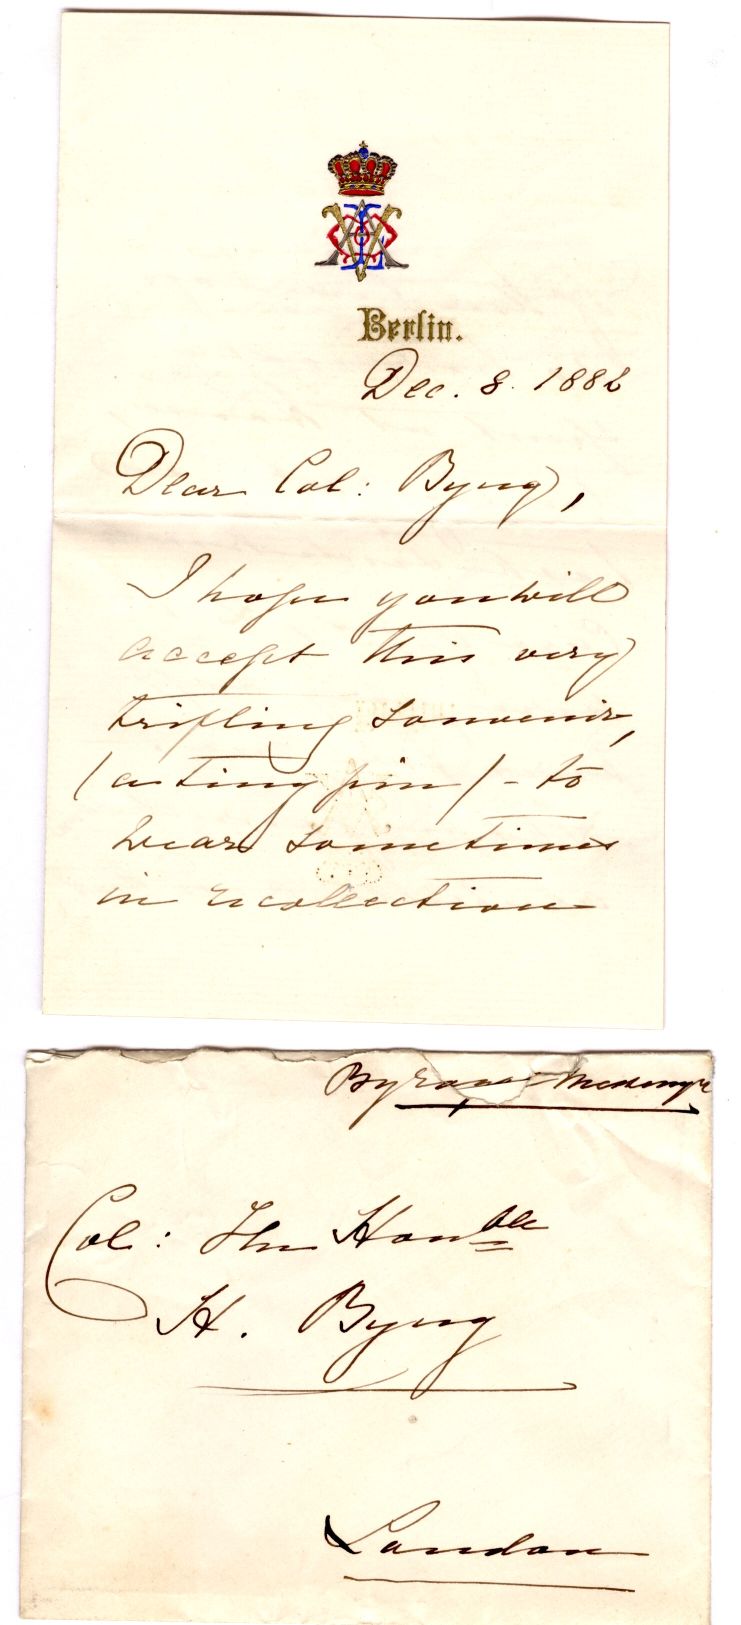 Berlin.
Dec. 8. 1882
Dear Col: Byng,
I hope you will
accept this very
trifling souvenir,
(a tiny pin) - to
wear sometimes
in recollection
By Messenger
Col: The Honble
H. Byng
London